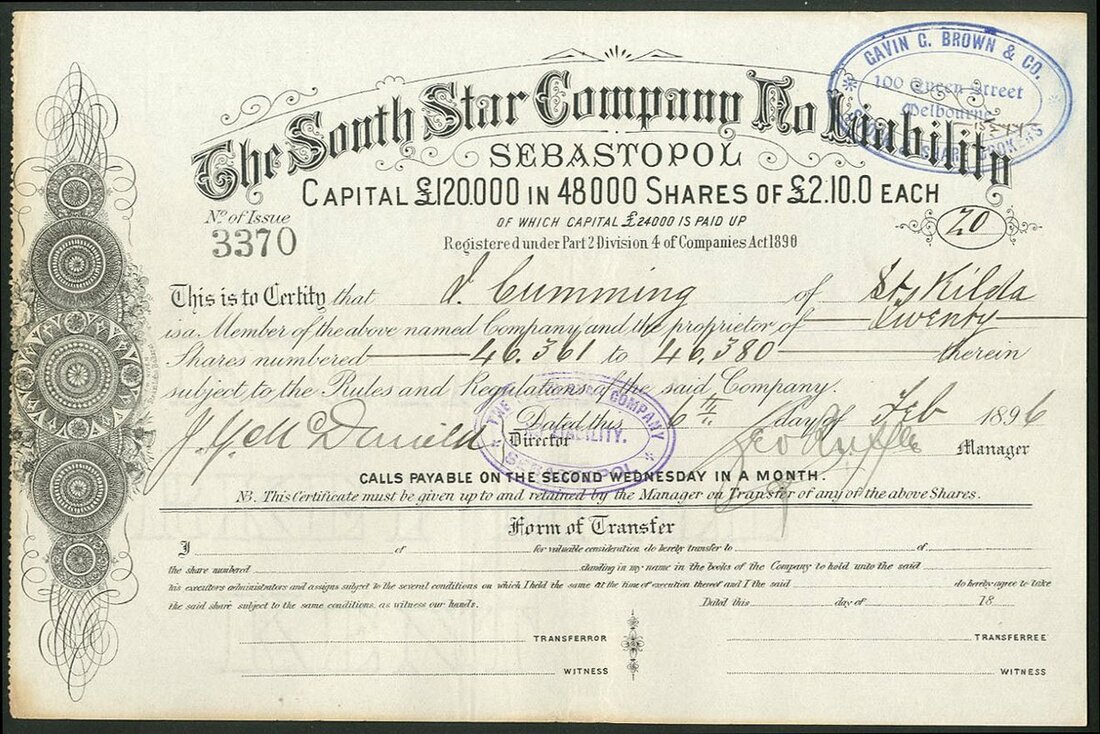 GAVIN G. BROWN & CO.
100 Queen Street
Melbourne
The South Star Company No Liability
SEBASTOPOL
CAPITAL £120.000 IN 48000 SHARES OF £2.10.0 EACH
OF WHICH CAPITAL £24000 IS PAID UP
No. of Issue
3370
Registered under Part 2 Division 4 of Companies Act 1890
20
This is to Certify that J. Cumming of St Kilda
is a Member of the above named Company and the proprietor of Twenty
Shares numbered 46.361 to 46.380 therein
subject to the Rules and Regulations of the said Company.
Dated this 6th day of Feb 1896
Director
Manager
THE COMPANY
LIABILITY.
SEBASTOPOL
CALLS PAYABLE ON THE SECOND WEDNESDAY IN A MONTH.
NB. This Certificate must be given up to and retained by the Manager on Transfer of any of the above Shares.
Form of Transfer
I of for valuable consideration do hereby transfer to of
the share numbered standing in my name in the books of the Company to hold unto the said
his executors administrators and assigns subject to the several conditions on which I held the same at the time of execution thereof and I the said do hereby agree to take
the said share subject to the same conditions, as witness our hands. Dated this day of 18
TRANSFEROR TRANSFEREE
WITNESS WITNESS